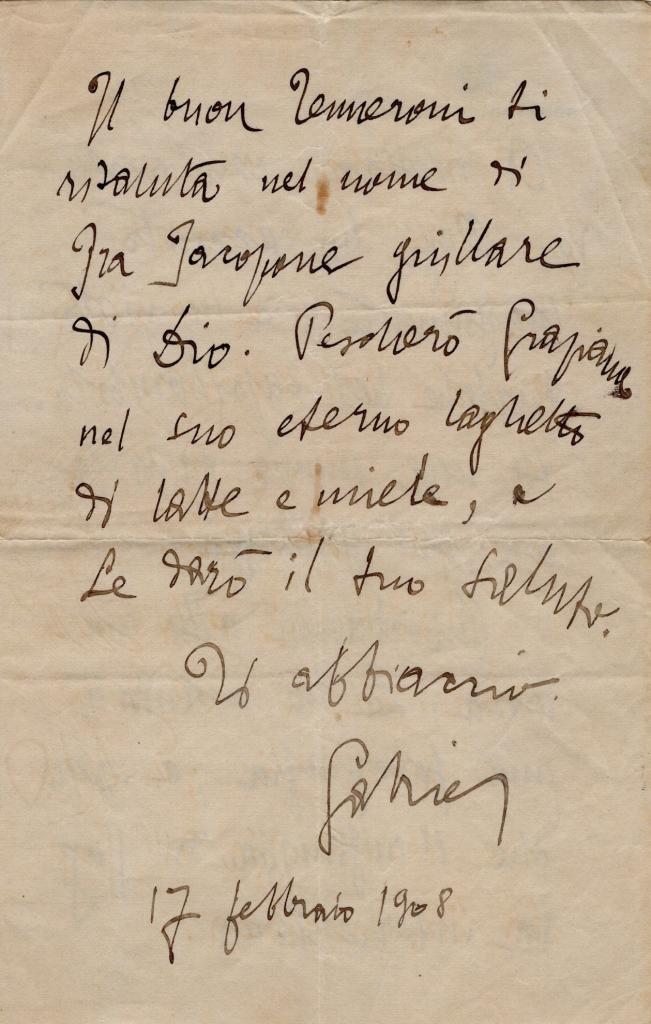 Il buon Tenneroni ti
risaluta nel nome di
Fra Jacopone giullare
di Dio. Pescherò
nel suo eterno laghetto
di latte e miele, e
Le darò il tuo saluto.
Ti abbraccio.
Gabriel
17 febbraio 1908